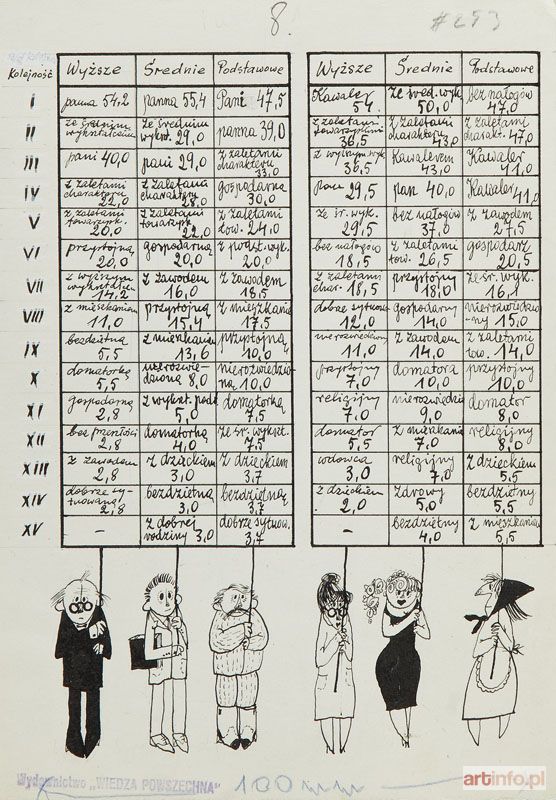 8.
#253
Kolejność Wyższe Średnie Podstawowe Wyższe Średnie Podstawowe
I panna 54,2 panna 55,4 Pani 47,5 Kawaler 54. ze śred. wyk. 50,0 bez nałogów 47,0
II ze średnim wykształceniem ze średnim wykszt. 29,0 panna 39,0 z zaletami towarzyskimi 36,5 z zaletami charakteru 43,0 z zaletami charakt. 47,0
III pani 40,0 pani 29,0 z zaletami charakteru 33,0 z wyższym wyk. 36,5 Kawalerem 43,0 Kawaler 41,0
IV z zaletami charakteru 22,0 z zaletami charakteru 28,0 gospodarną 30,0 pan 29,5 pan 40,0 Kawaler 41,0
V z zaletami towarzysk. 20,0 z zaletami towarzysk. 22,0 z zaletami tow. 24,0 ze śr. wyk. 29,5 bez nałogów 37,0 z zawodem 27,5
VI przystojną 20,0 gospodarną 20,0 z podst. wyk. 20,0 bez nałogów 18,5 z zaletami tow. 26,5 gospodarz 20,5
VII z wyższym wykształceniem 14,2 z zawodem 16,0 z zawodem 18,5 z zaletami char. 18,5 przystojny 18,0 ze śr. wyk. 16,1
VIII z mieszkaniem 11,0 przystojną 15,4 z mieszkaniem 17,5 dobrze sytuow. 12,0 gospodarny 14,0 nierozwiedziony 15,0
IX bezdzietną 5,5 z mieszkaniem 13,6 przystojną 10,0 nierozwiedziony 11,0 z zawodem 14,0 z zaletami tow. 14,0
X domatorkę 5,5 nierozwiedzioną 8,0 nierozwiedzioną 10,0 przystojny 7,0 domatora 10,0 przystojny 10,0
XI gospodarną 2,8 z wykszt. podst. 5,0 domatorkę 7,5 religijny 7,0 nierozwiedziony 9,0 domator 8,0
XII bez przeszłości 2,8 domatorką 4,0 ze śr. wykszt. 7,5 domator 5,5 z mieszkaniem 7,0 religijny 8,0
XIII z zawodem 2,8 z dzieckiem 3,0 z dzieckiem 3,7 wdowca 3,0 religijny 7,0 z dzieckiem 5,5
XIV dobrze sytuowaną 2,8 bezdzietną 3,0 bezdzietną 3,7 z dzieckiem 2,0 zdrowy 5,0 bezdzietny 5,5
XV – z dobrej rodziny 3,0 dobrze sytuow. 3,7 – bezdzietny 4,0 z mieszkaniem 5,5
Wydawnictwo „WIEDZA POWSZECHNA"
100 mm
artinfo.pl